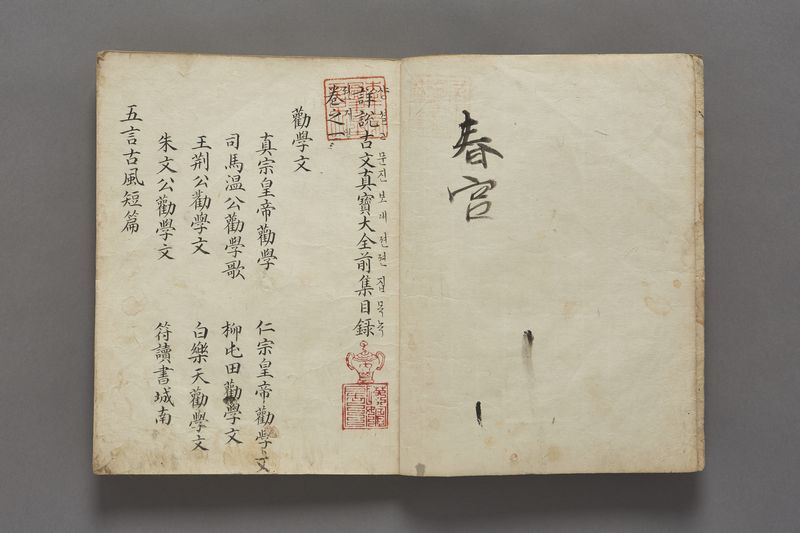 春宮
詳說古文真寶大全前集目錄
卷之一
勸學文
真宗皇帝勸學
仁宗皇帝勸學文
司馬溫公勸學歌
柳屯田勸學文
王荆公勸學文
白樂天勸學文
朱文公勸學文
符讀書城南
五言古風短篇